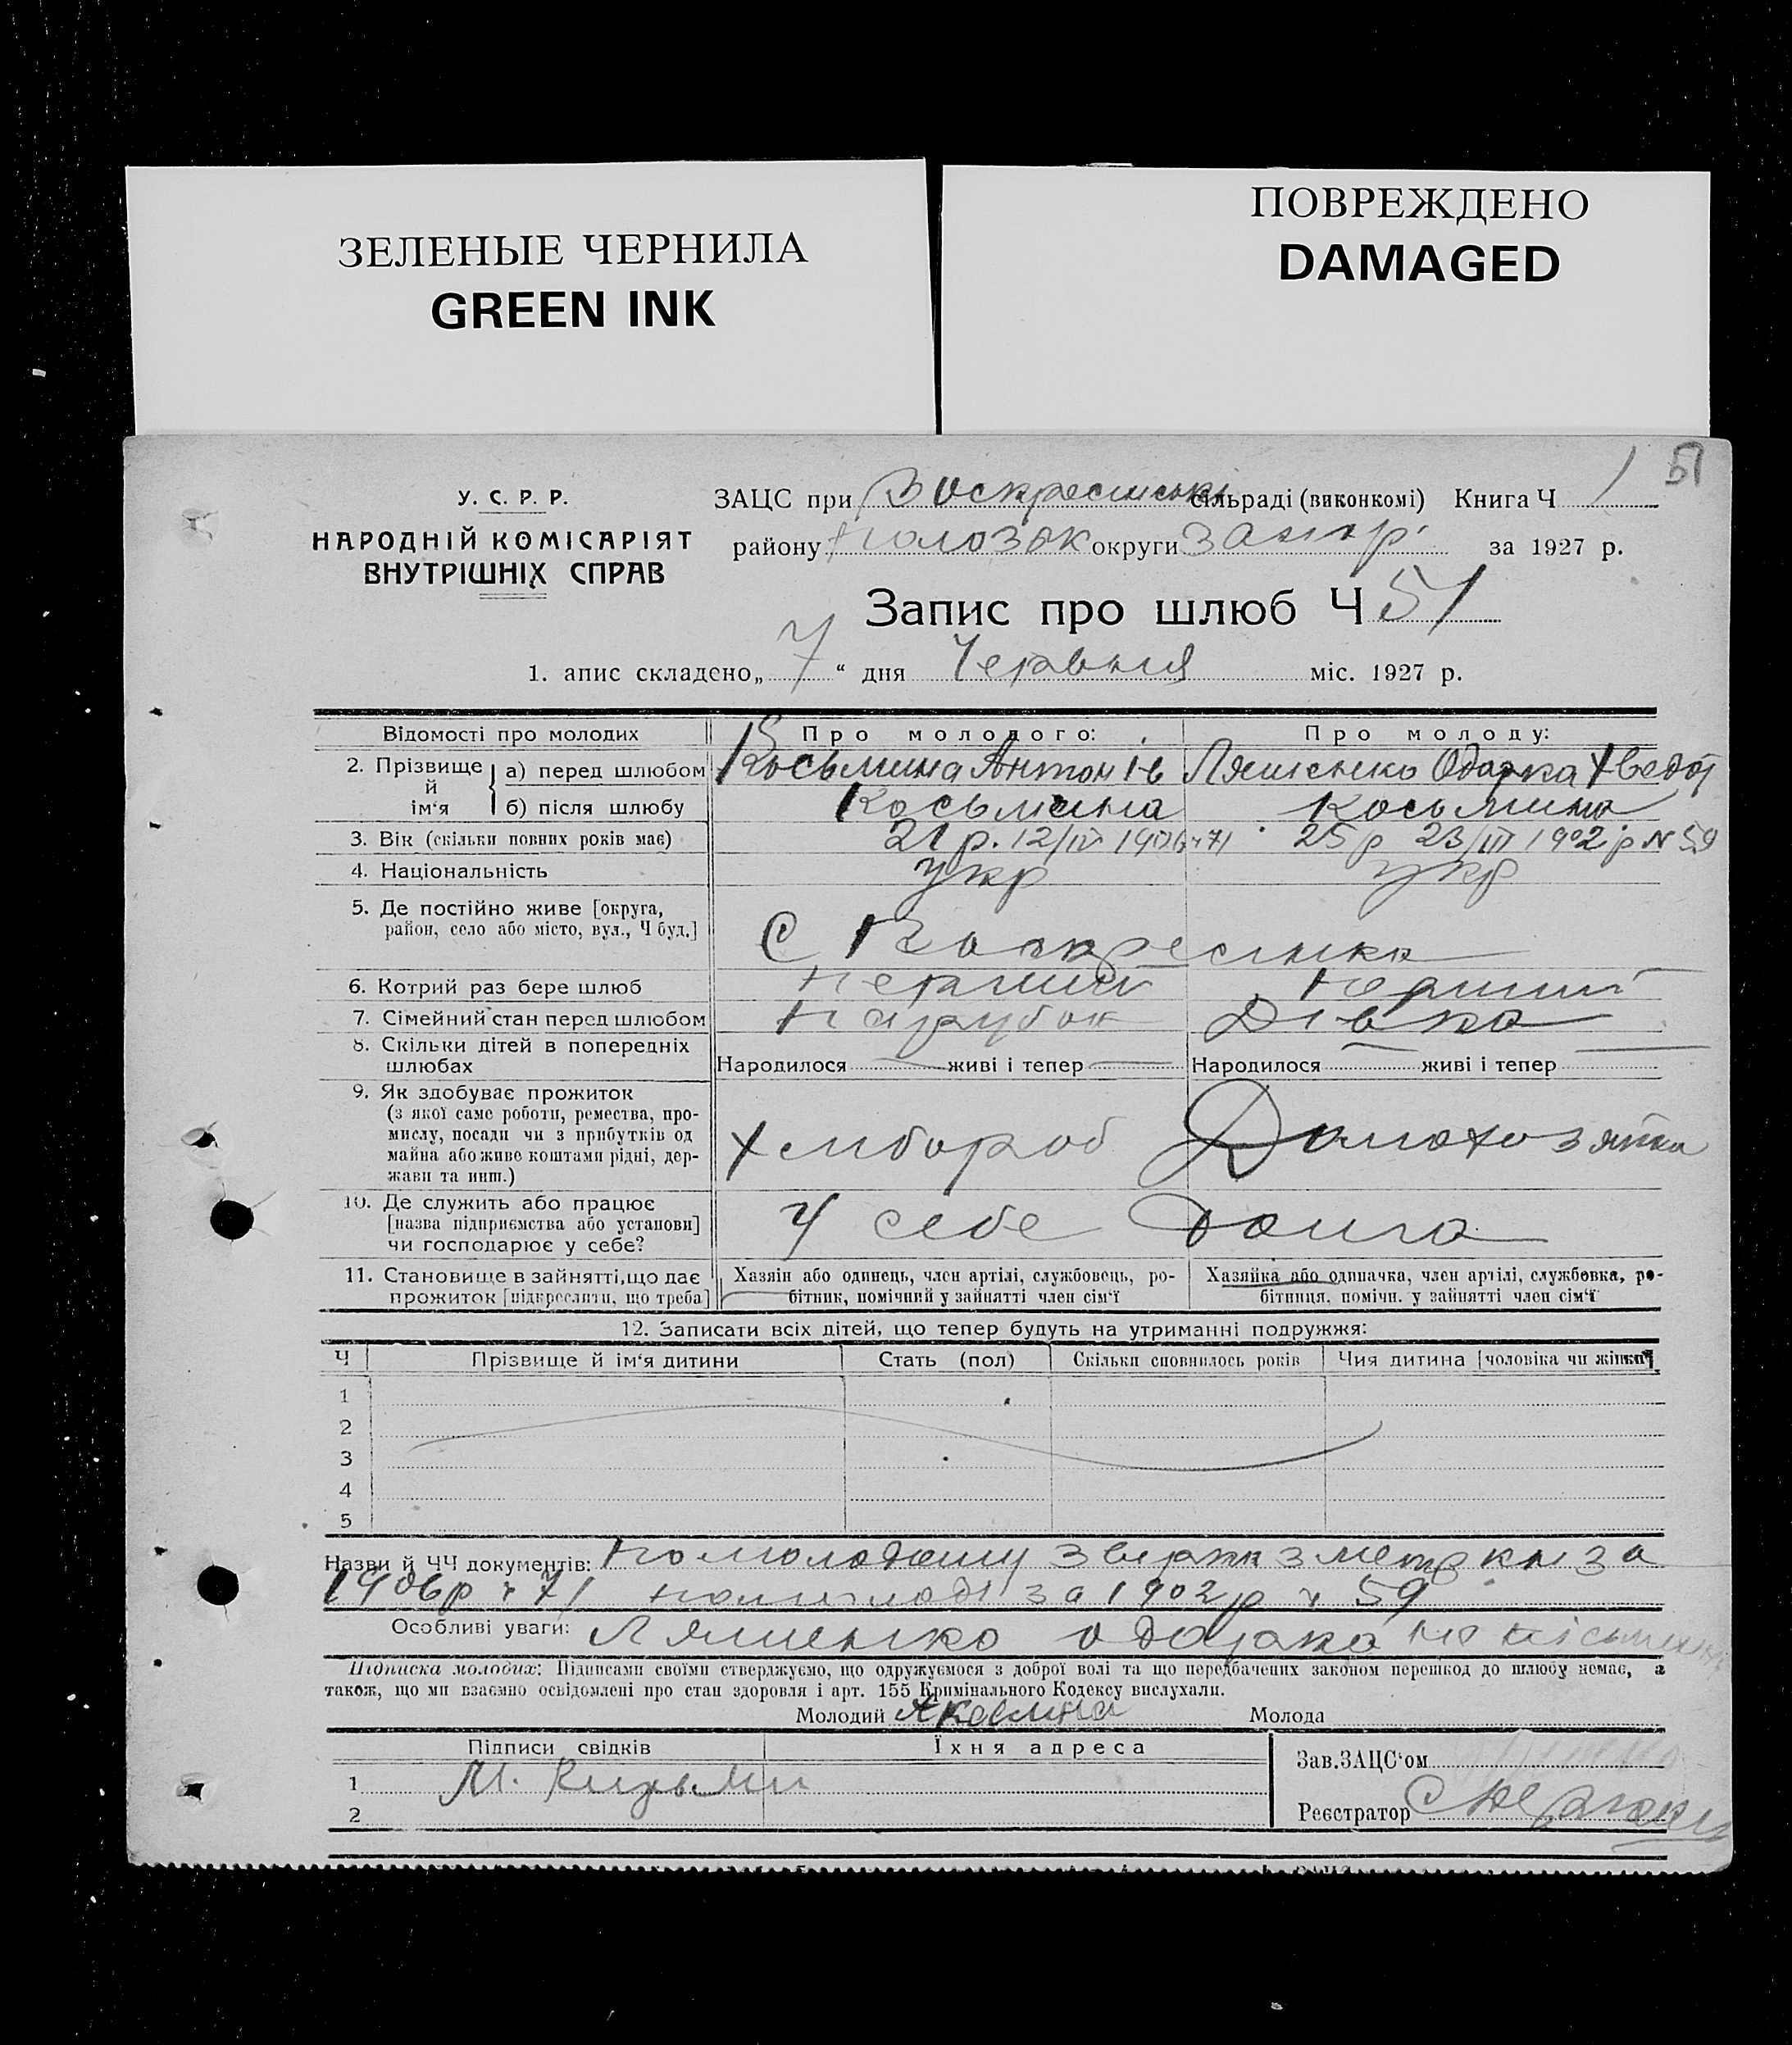 ЗЕЛЕНЫЕ ЧЕРНИЛА
GREEN INK
ПОВРЕЖДЕНО
DAMAGED
51
У. С. Р. Р.
НАРОДНІЙ КОМІСАРІЯТ
ВНУТРІШНІХ СПРАВ
ЗАЦС при Воскресинські сільраді (виконкомі) Книга Ч 1
району Пологівськ округи Запор. за 1927 р.
Запис про шлюб Ч 51
1. апис складено „ 7 “ дня Червьня міс. 1927 р.
Відомості про молодих Про молодого: Про молоду:
2. Прізвище й ім‘я а) перед шлюбом Косьмина Антон Ів Ляшенко Одарка Хведот
б) після шлюбу Косьмина Косьмина
3. Вік (скільки повних років має) 21 р. 12/IV 1906 ч 71 25 р 23/III 1902 р № 59
4. Національність укр укр
5. Де постійно живе [округа, район, село або місто, вул., Ч буд.] С Воскресинка
6. Котрий раз бере шлюб перший перший
7. Сімейний стан перед шлюбом парубок Дівка
8. Скільки дітей в попередніх шлюбах Народилося живі і тепер Народилося живі і тепер
9. Як здобуває прожиток
(з якої саме роботи, ремества, про-
мислу, посади чи з прибутків од
майна або живе коштами рідні, дер-
жави та инш.)
Хлибороб Домохозяйка
10. Де служить або працює
[назва підприємства або установи]
чи господарює у себе?
У себе дома
11. Становище в зайнятті, що дає
прожиток [підкреслити, що треба]
Хазяін або одинець, член артілі, службовець, ро-
бітник, помічний у зайнятті член сім‘ї
Хазяйка або одиначка, член артілі, службовка, ро-
бітниця, помічн. у зайнятті член сім‘ї
12. Записати всіх дітей, що тепер будуть на утриманні подружжя:
Ч Прізвище й ім‘я дитини Стать (пол) Скільки сповнилось років Чия дитина [чоловіка чи жінки]
1
2
3
4
5
Назви й ЧЧ документів: по молодому з метр кн за
1906р ч 71 по молоді за 1902р ч 59
Особливі уваги: Ляшенко Одарка не письменна
Підписка молодих: Підписами своїми стверджуємо, що одружуємося з доброї волі та що передбачених законом перешкод до шлюбу немає, а
також, що ми взаємно освідомлені про стан здоровля і арт. 155 Кримінального Кодексу вислухали.
Молодий Молода
Підписи свідків Їхня адреса
1
2
Зав.ЗАЦС‘ом
Реєстратор